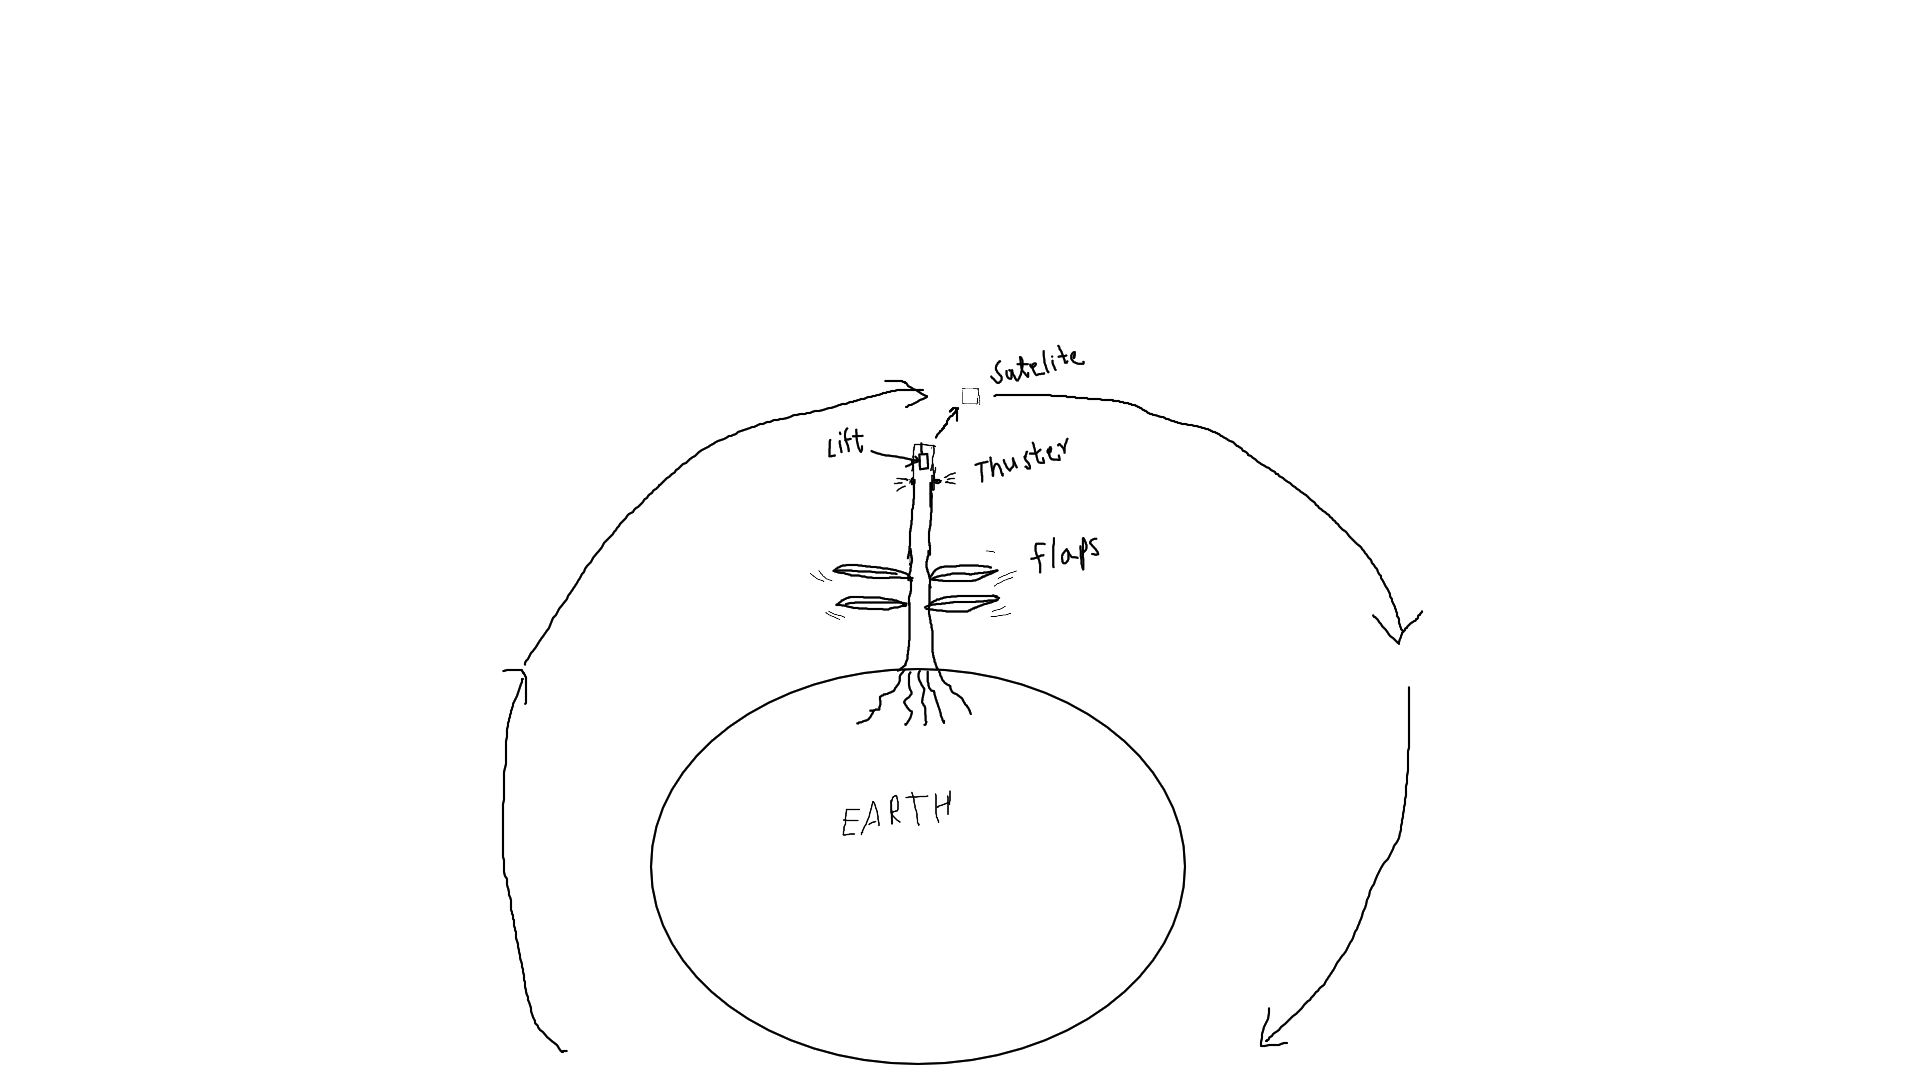 Satelite
Lift
Thuster
flaps
EARTH